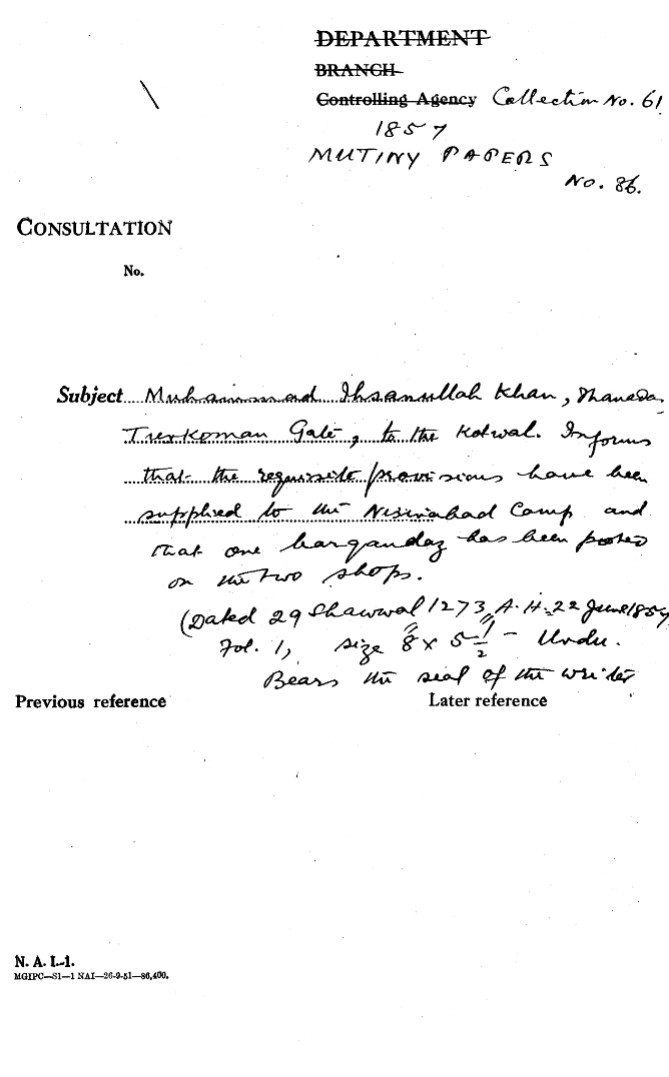 DEPARTMENT
BRANCH
Controlling Agency Collection No. 61
1857
MUTINY PAPERS
No. 86.
CONSULTATION
No.
Subject Muhammad Ihsanullah Khan, Thanadar
Turkoman Gate, to the Kotwal. Informs
that the requisite provisions have been
supplied to the Nisirabad Camp and
that one barqandaz has been posted
on the two shops.
(Dated 29 Shawwal 1273 A.H. 22 June 1857
Fol. 1, size 8" x 5 1/2" - Urdu.
Bears the seal of the writer
Previous reference
Later reference
N. A. I.-1.
MGIPC—S1—1 NAI—26-9-51—86,400.